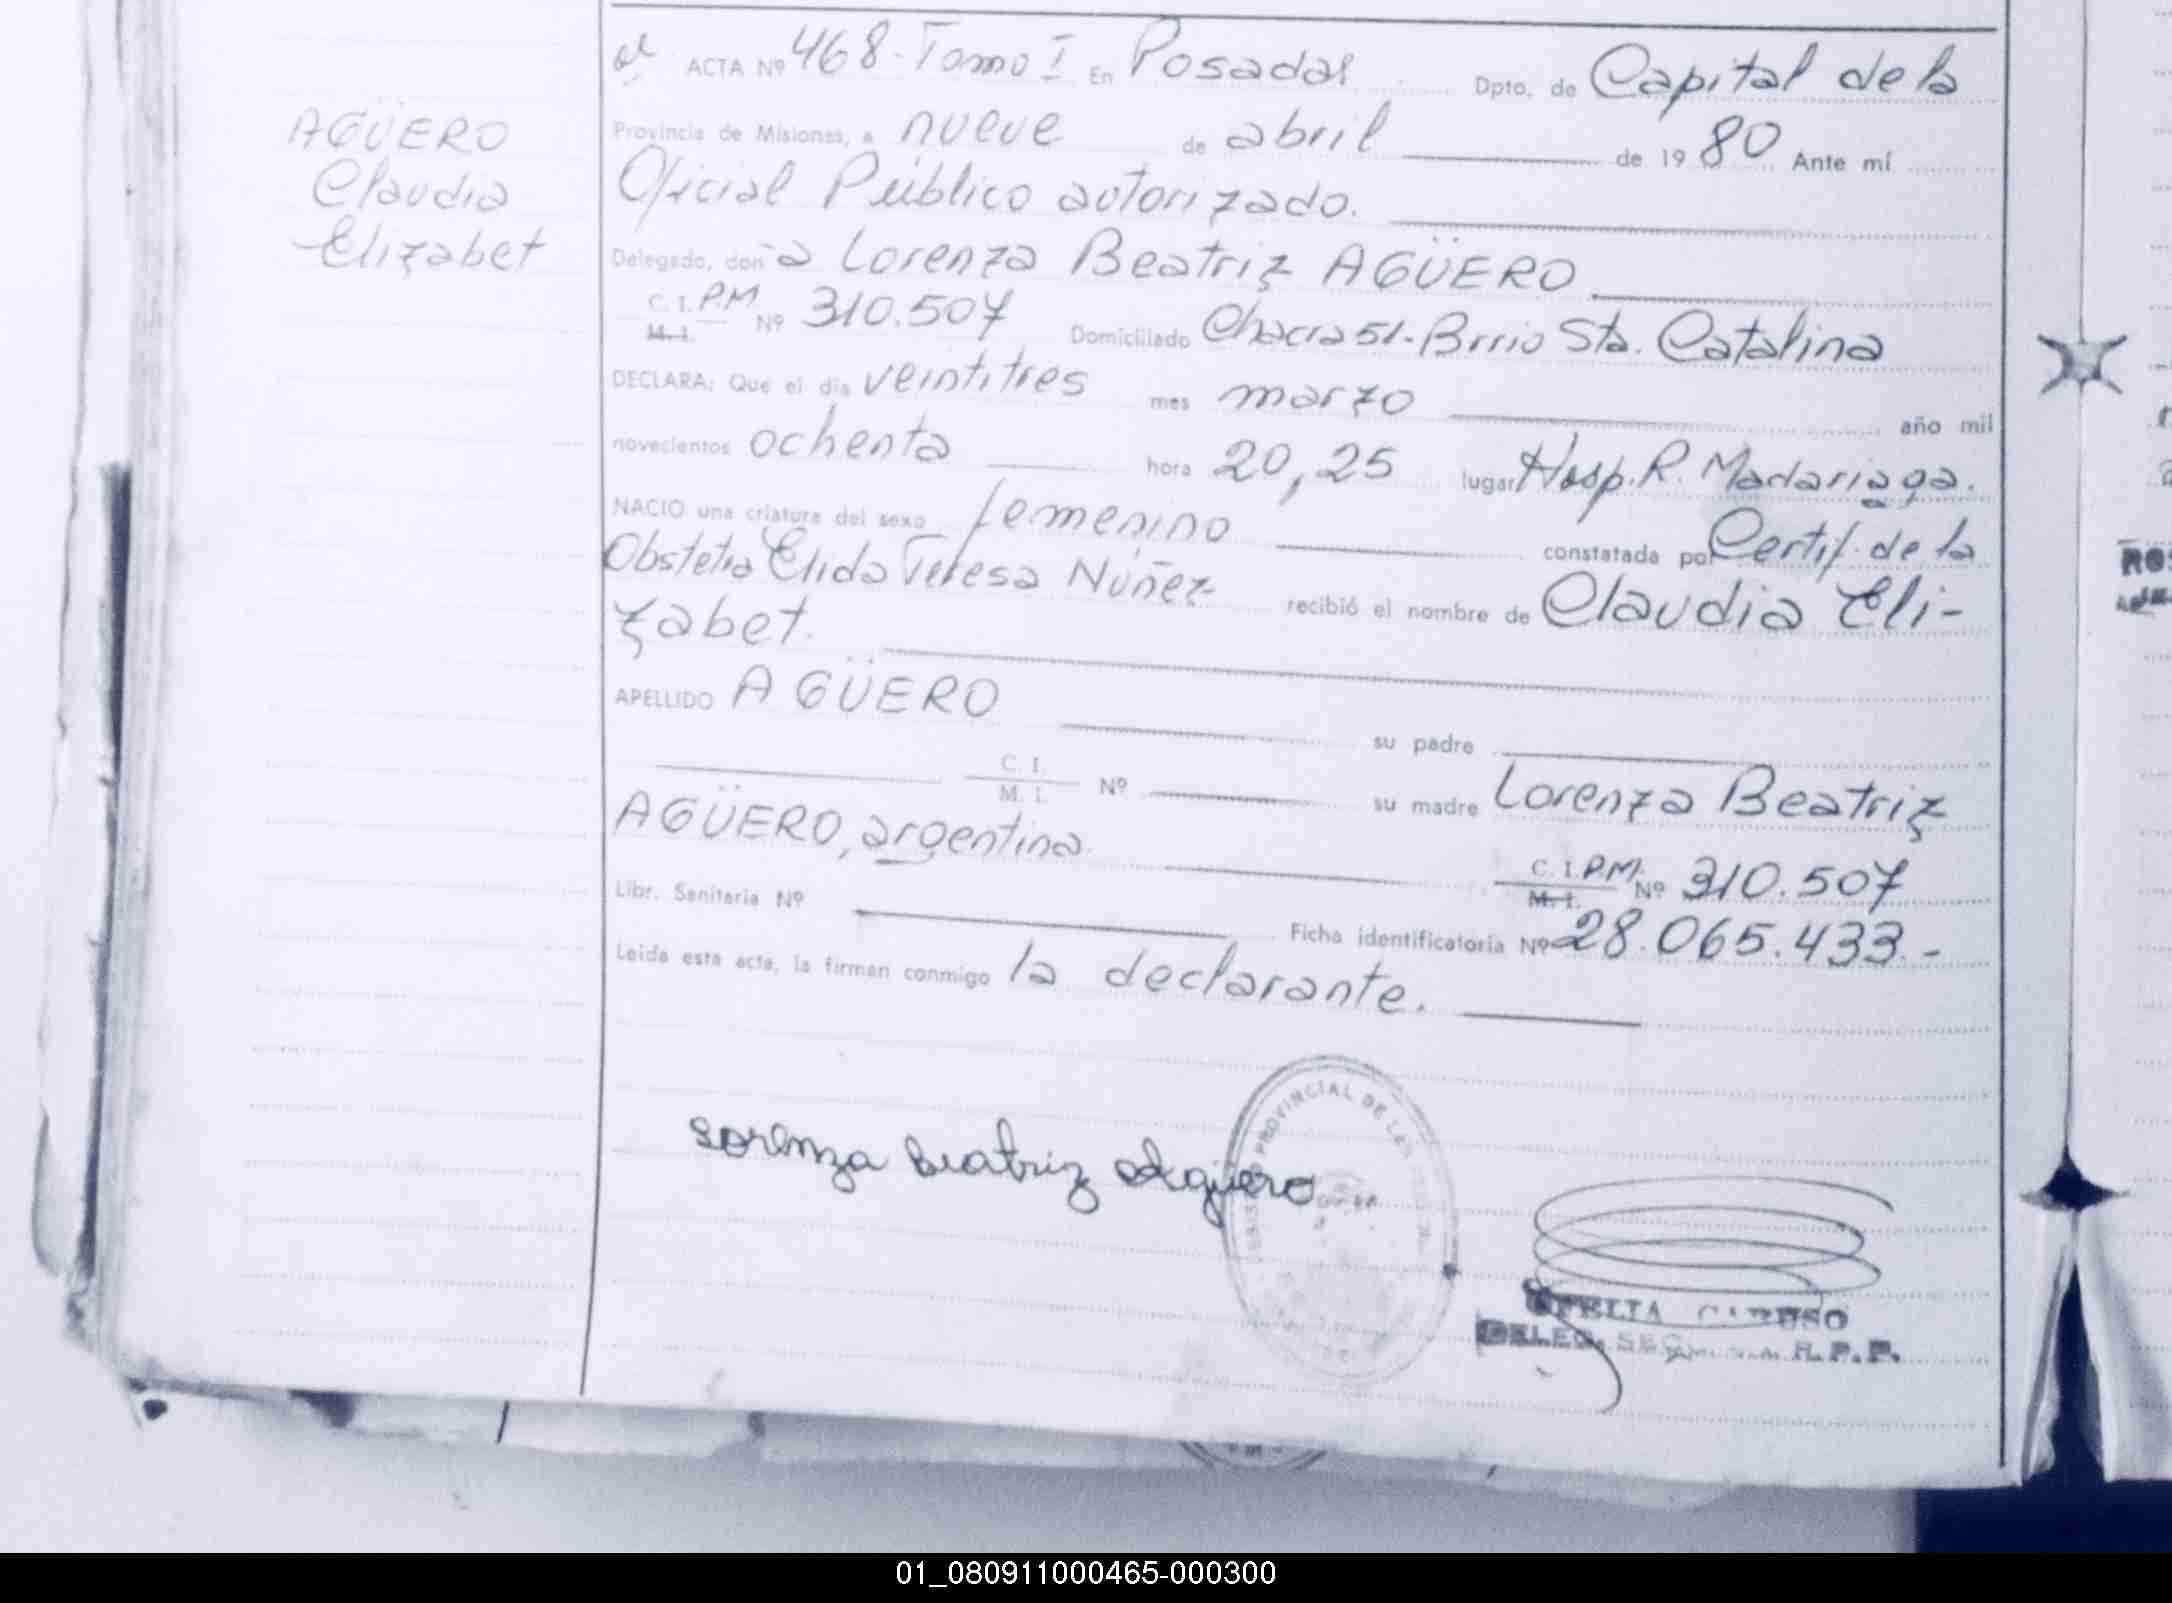 AGÜERO
Claudia
Elizabet
ACTA Nº 468-Tomo I En Posadas Dpto. de Capital de la
Provincia de Misiones, a nueve de abril de 1980 Ante mí
Oficial Público autorizado.
Delegado, don a Lorenza Beatriz AGÜERO
C. I. P.M
M. I. Nº 310.507 Domiciliado Chacra 51-Brrio Sta. Catalina
DECLARA: Que el día veintitres mes marzo año mil
novecientos ochenta hora 20,25 lugar Hosp. R. Madariaga.
NACIO una criatura del sexo femenino constatada por Certif. de la
Obstetra Elida Teresa Núñez recibió el nombre de Claudia Eli-
zabet.
APELLIDO AGÜERO su padre
C. I.
M. I. Nº su madre Lorenza Beatriz
AGÜERO, argentina
C. I. P.M.
M. I. Nº 310.507
Libr. Sanitaria Nº Ficha identificatoria Nº 28.065.433.-
Leida esta acta, la firman conmigo la declarante.
Lorenza Beatriz Agüero
PROVINCIAL DE LAS
OFELIA CARUSO
DELEG. R.P.P.
01_080911000465-000300